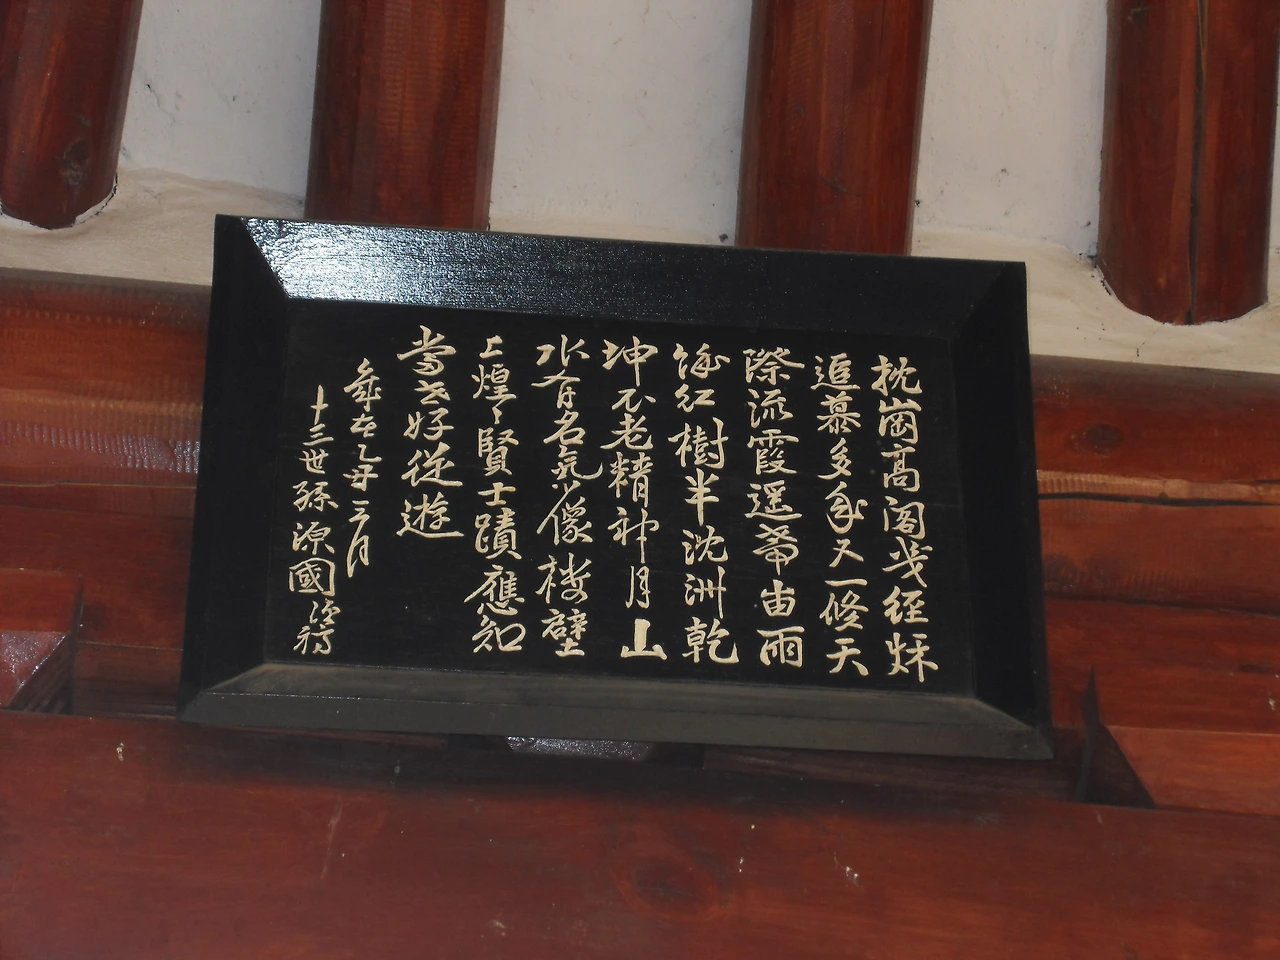 枕崗高閣幾經秌
追慕多年又一修天
際流霞遥帶峀雨
餘紅樹半沈洲乾
坤不老精神月山
水有名氣像樓壁
上煌〻賢士蹟應知
當世好從遊
歲在乙 月
十三世孫源國謹稿